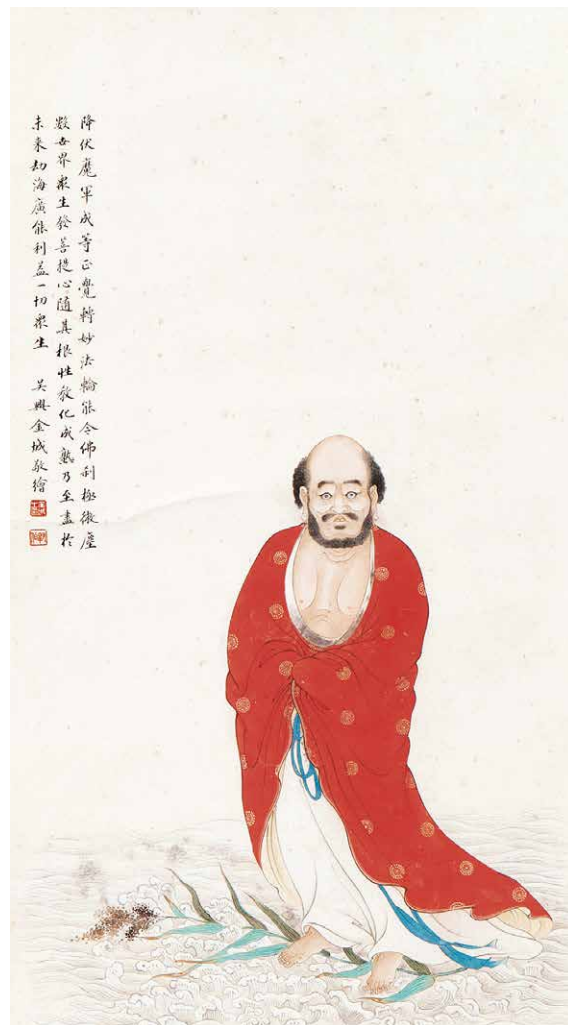 降伏魔軍成等正覺轉妙法輪能令佛刹極微塵
數世界衆生發菩提心隨其根性教化成熟乃至盡於
未來劫海廣能利益一切衆生　吳興金城敬繪